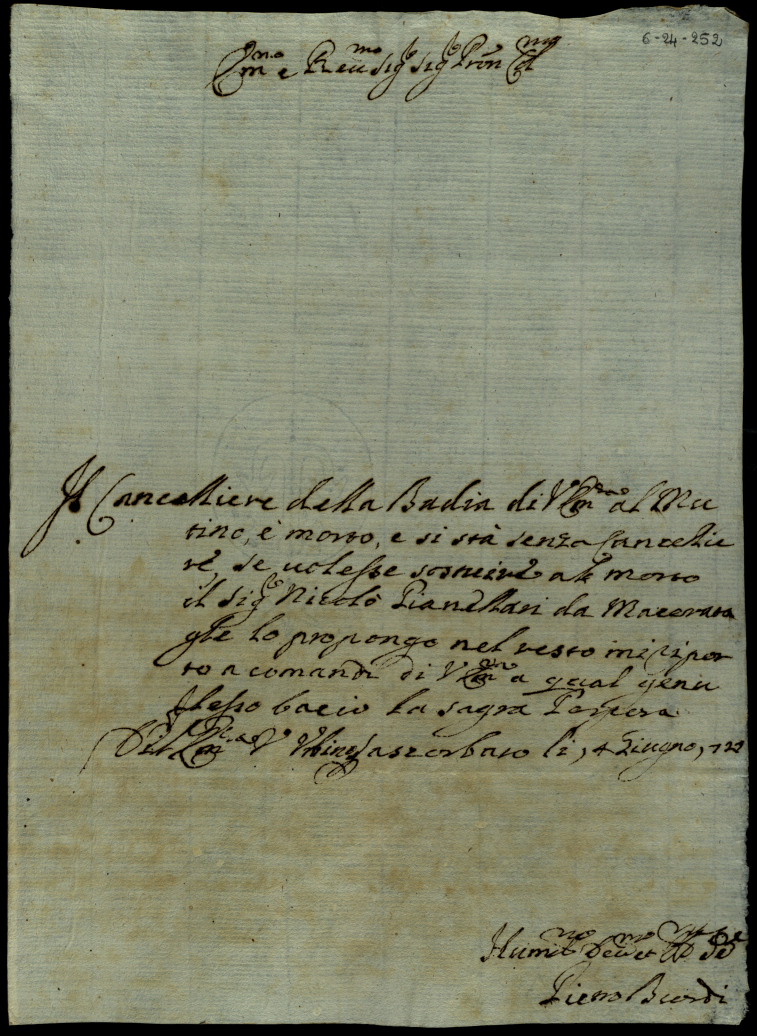 6-24-252
Em.no e Reu.mo Sig.re Sig.re Pron Col.mo
Il Cancelliere della Badia di V. Em.za al Mu
tino, è morto, e si stà senza Cancellie
re, se uolesse sostituire al morto
il Sig.re Nicolò Pianellari da Macerata
glie lo propongo nel resto mi ripor
to a comandi di V. Em.za a qual genu
flesso bacio la sagra Porpora
Di V. Em.za li, 4 Giugno, 722
Humil.mo Deuot.mo
Pietro Buordi